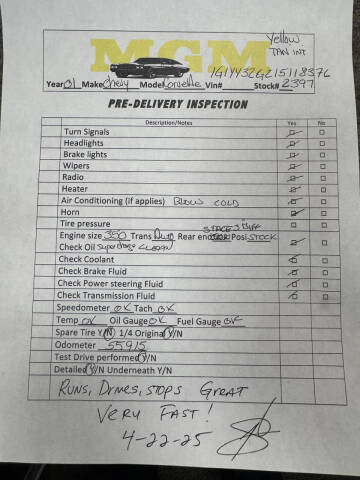 MGM
Yellow
TAN INT
1G1YY32G215118376
Year 01 Make Chevy Model Corvette Vin# Stock# 2397
PRE-DELIVERY INSPECTION
Description/Notes Yes No
Turn Signals
Headlights
Brake lights
Wipers
Radio
Heater
Air Conditioning (if applies) BLOWS COLD
Horn
Tire pressure
Engine size 350 Trans Auto Rear end Posi STOCK
Check Oil Supercharge CLEAN
Check Coolant
Check Brake Fluid
Check Power steering Fluid
Check Transmission Fluid
Speedometer OK Tach OK
Temp OK Oil Gauge OK Fuel Gauge OK
Spare Tire Y/N 1/4 Original Y/N
Odometer 55915
Test Drive performed Y/N
Detailed Y/N Underneath Y/N
RUNS, DRIVES, STOPS GREAT
VERY FAST!
4-22-25